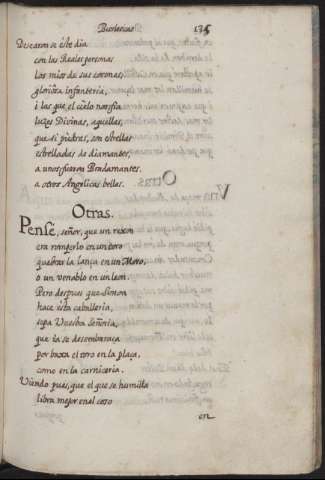 Burlescas 135
Dexaron se este dia
con las Reales personas
las mias de sus coronas,
gloriosa infanteria,
i las que el cielo nos fia
luzes Divinas, aquellas,
que si piedras, son estrellas
estrelladas de diamantes,
a unos fueron Bradamantes,
a otros Angelicas bellas.
Otras.
Pense, señor, que un rejon
era romperlo en un toro
quebrar la lança en un Moro,
o un venablo en un leon.
Pero despues que Simon
hace esta cavalleria,
sepa Vuestra Señoria,
que ia se desembaraça
por baxa el toro en la plaça,
como en la carniceria.
Viendo pues, que el que se humilla
libra mejor en al coso
en